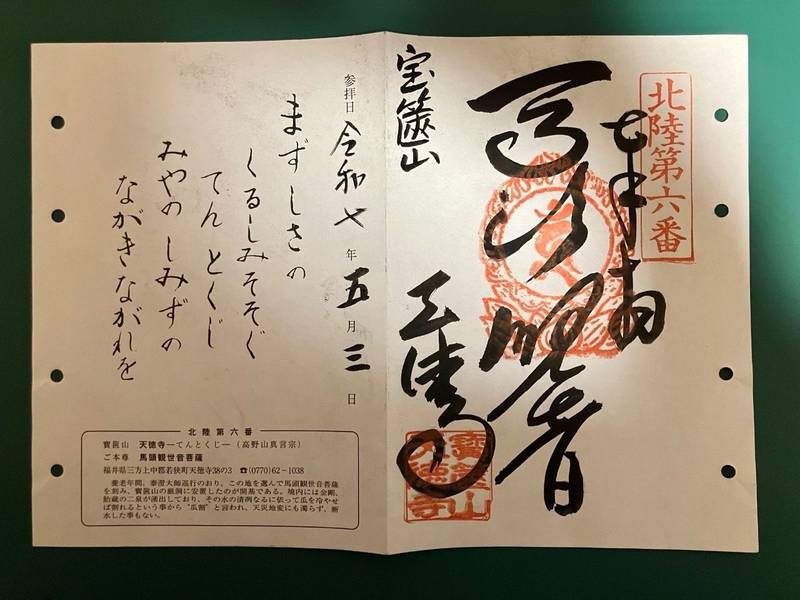 北陸第六番
奉拝
馬頭観音
宝篋山
天徳寺
寶篋山
天徳寺
参拝日 令和七年五月三日
まずしさの
くるしみそそぐ
てんとくじ
みやのしみずの
ながきながれを
北陸第六番
寶篋山 天徳寺―てんとくじ―(高野山真言宗)
ご本尊 馬頭観世音菩薩
福井県三方上中郡若狭町天徳寺38の3 ☎(0770)62-1038
養老年間、泰澄大師巡行のおり、この地を選んで馬頭観世音菩薩
を刻み、寶篋山の巌洞に安置したのが開基である。境内には金剛、
胎蔵の二泉が湧出しており、その水の清冽なるに依って瓜を冷やせ
ば割れるという事から“瓜割”と言われ、天災地変にも濁らず、断
水した事もない。